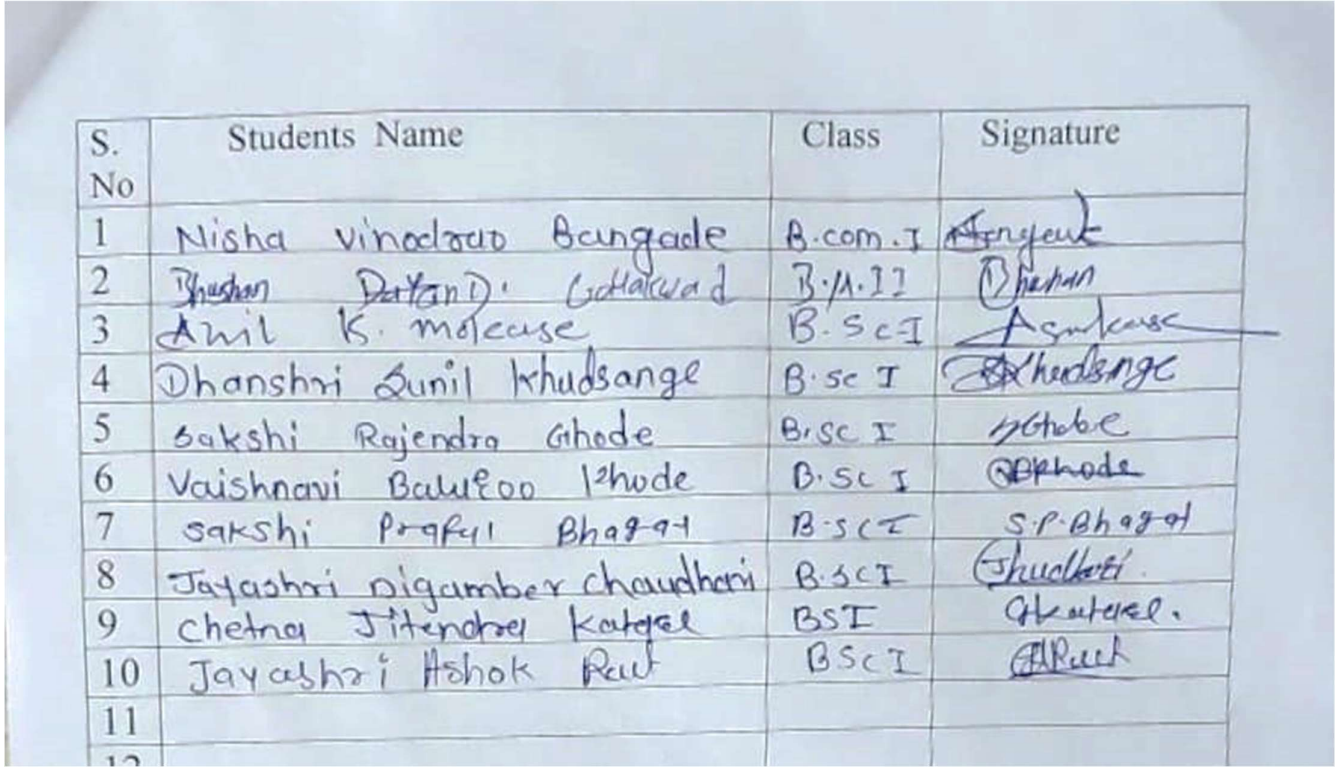 S. No Students Name Class Signature
1 Nisha Vinodrao Bangade B.com.I
2 Bhushan B.A.II Bhushan
3 Anil K. molcuse B.Sc-I
4 Dhanshri Sunil Khudsange B.sc I Khudsange
5 Sakshi Rajendra Ghode B.SC I
6 Vaishnavi B.Sc I
7 Sakshi Praful Bhagat B.SC I S.P.Bhagat
8 Jayashri Digamber Chaudhari B.SC I
9 Chetna Jitendra BSI
10 Jayashri Ashok Raut BSc I
11
12